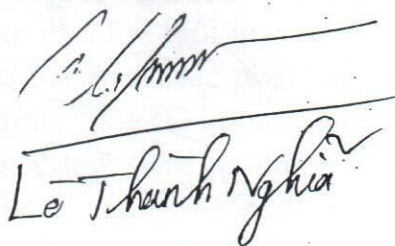 Lê Thanh Nghĩa